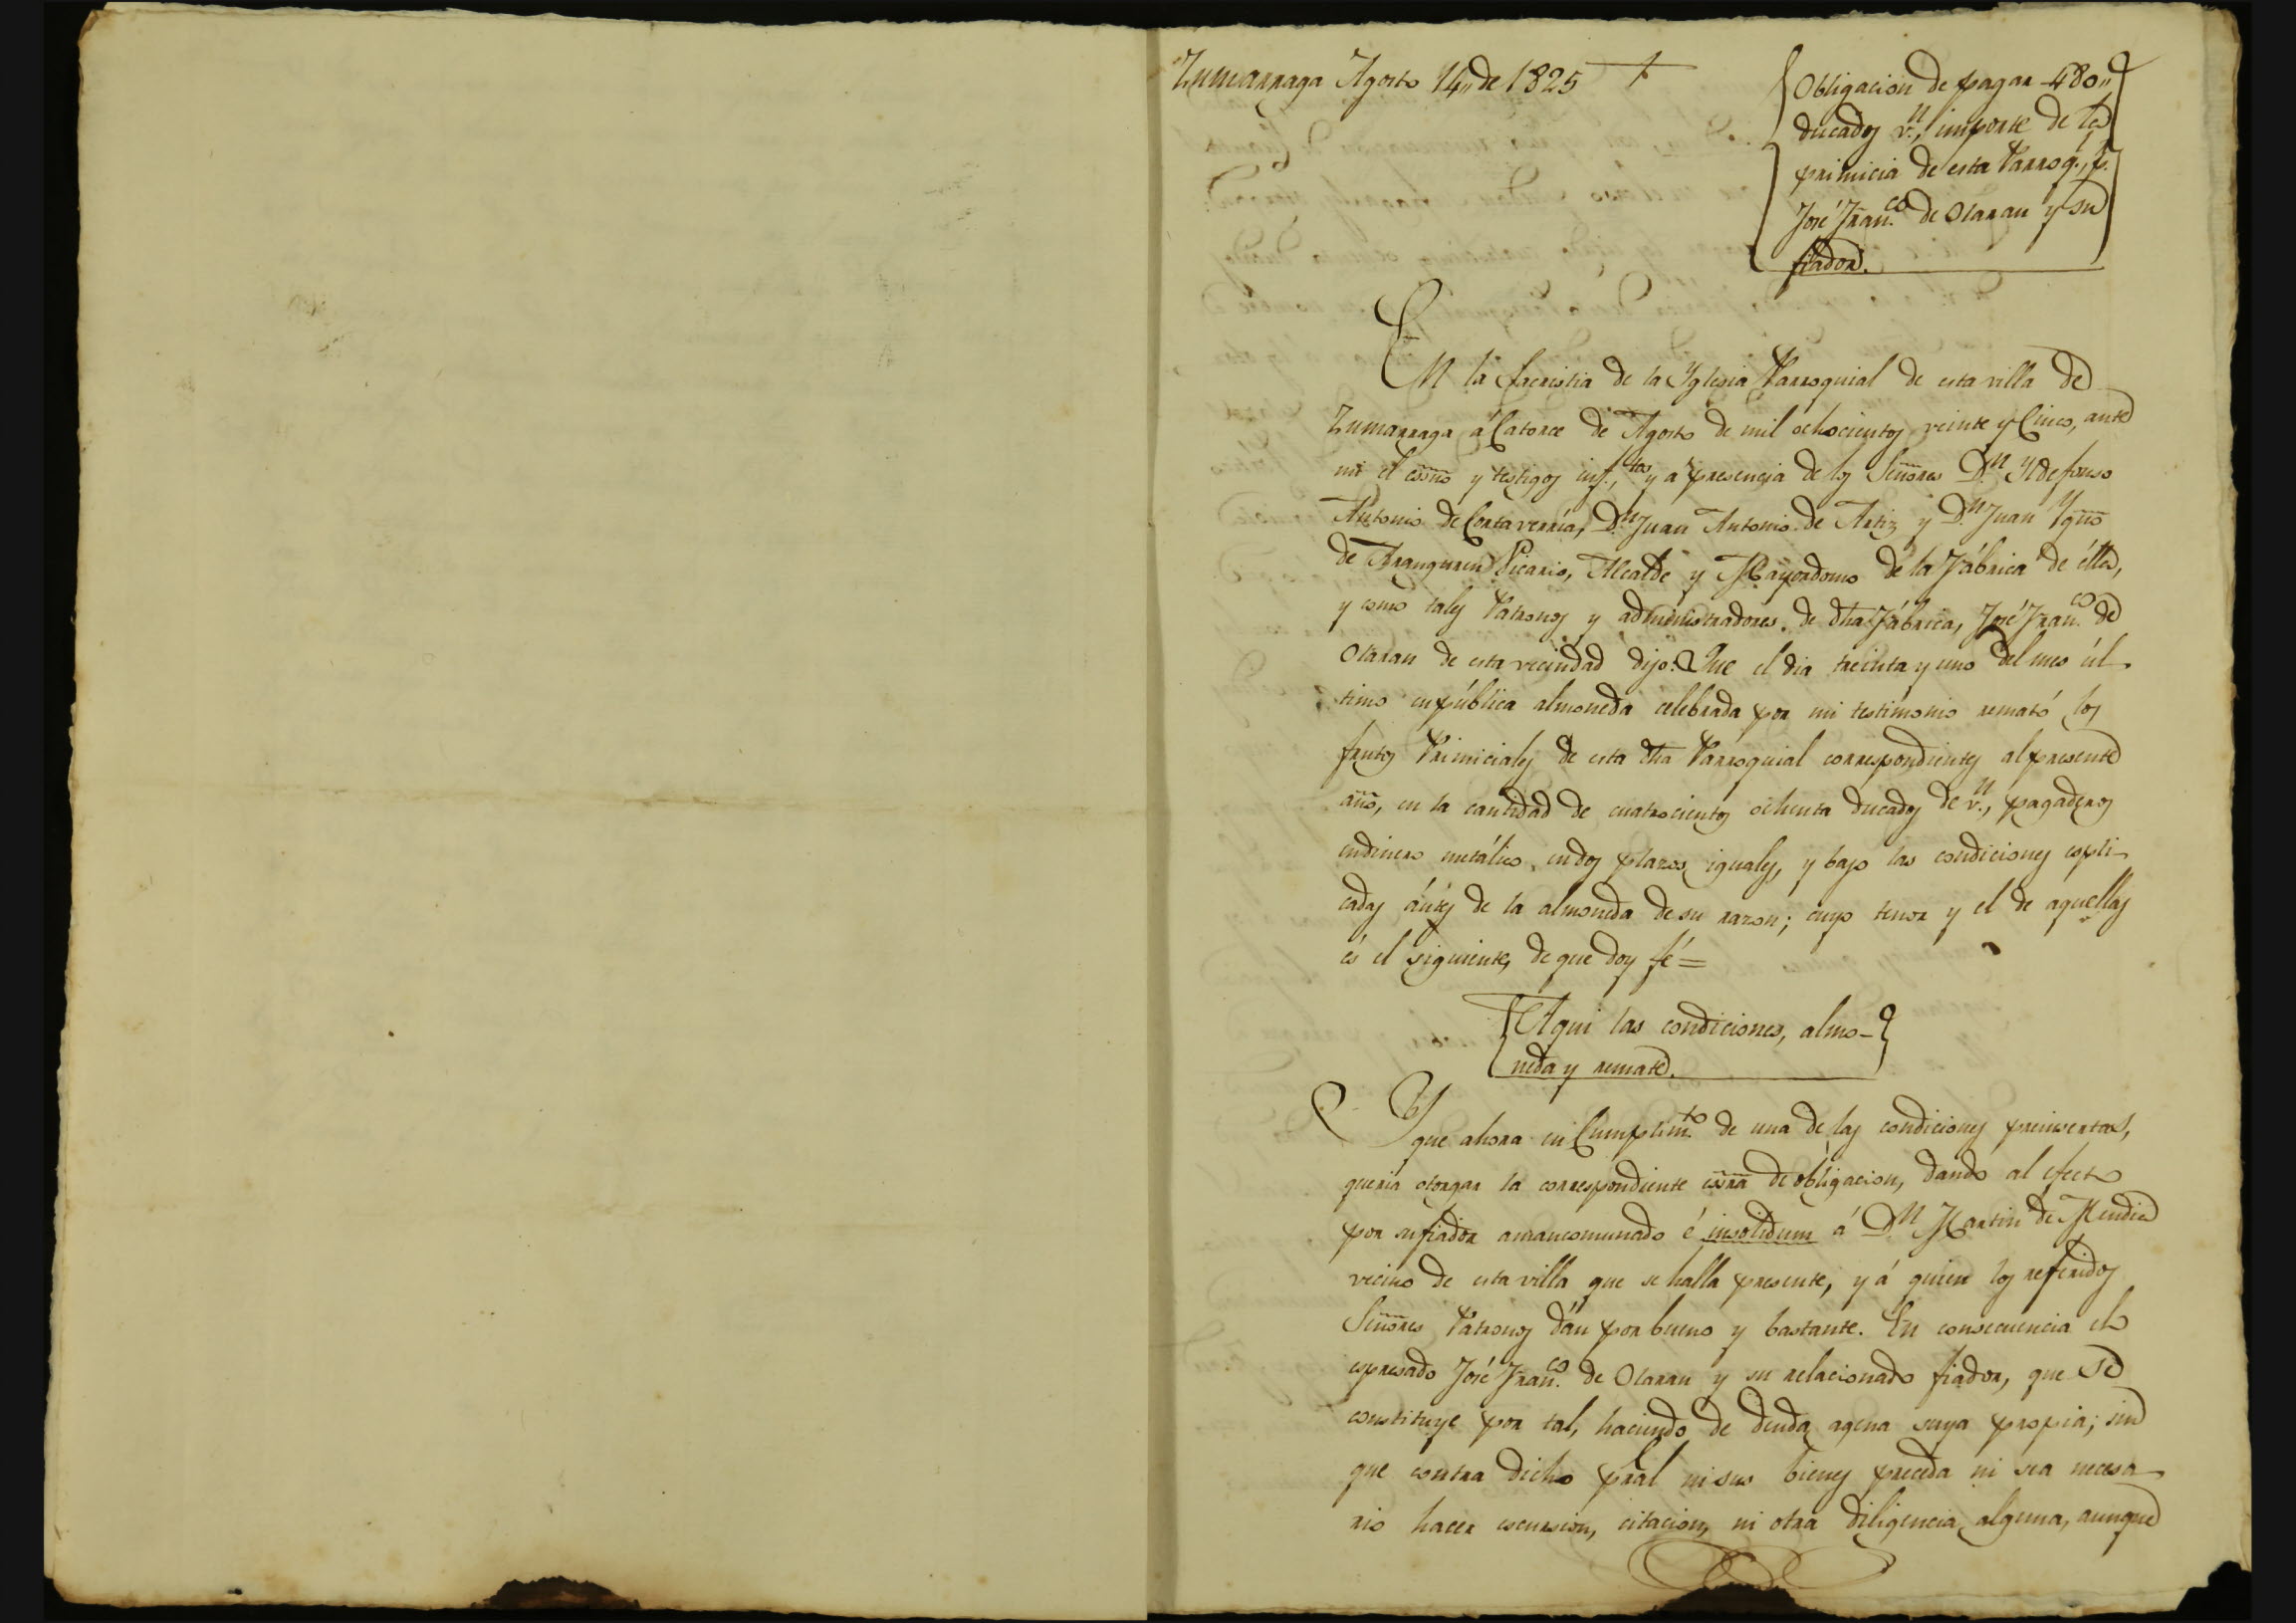 Zumarraga Agosto 14,, de 1825
Obligacion de pagar 480,,
ducados v.n, importe de la
primicia de esta Parroq.l, p.r
José Fran.co de Otaran y su
fiador.
En la Sacristia de la Yglesia Parroquial de esta villa de
Zumarraga á Catorce de Agosto de mil ochocientos veinte y Cinco, ante
mi el essno y testigos inf.tos, y a presencia de los Señores D.n Yldefonso
Antonio de Cortaverría, D.n Juan Antonio de Artiz y D.n Juan Ygno
de Aranguren Vicario, Alcalde y Mayordomo de la Fábrica de élla,
y como tales Patronos y administradores de dha Fábrica, José Fran.co de
Otaran de esta vecindad dijo: Que el dia treinta y uno del mes úl-
timo en pública almoneda celebrada por mi testimonio remató los
frutos Primiciales de esta dha Parroquial correspondientes al presente
año, en la cantidad de cuatrocientos ochenta ducados de v.n, pagaderos
en dinero metálico, en dos plazos iguales, y bajo las condiciones espli-
cadas ántes de la almoneda de su razon; cuyo tenor y el de aquellas
és el siguiente, de que doy fé=
Aqui las condiciones, almo-
neda y remate.
Y que ahora en Cumplim.to de una de las condiciones preinsertas,
queria otorgar la correspondiente essra de obligacion, dando al efecto
por su fiador amancomunado é insolidum á D.n Martin de Mendia
vecino de esta villa que se halla presente, y á quien los referidos
Señores Patronos dán por bueno y bastante. En consecuencia el
espresado José Fran.co de Otaran y su relacionado fiador, que se
constituye por tal, haciendo de deuda agena suya propia; sin
que contra dicho pral ni sus bienes preceda ni sea necesa-
rio hacer escursion, citacion, ni otra diligencia alguna, aunque